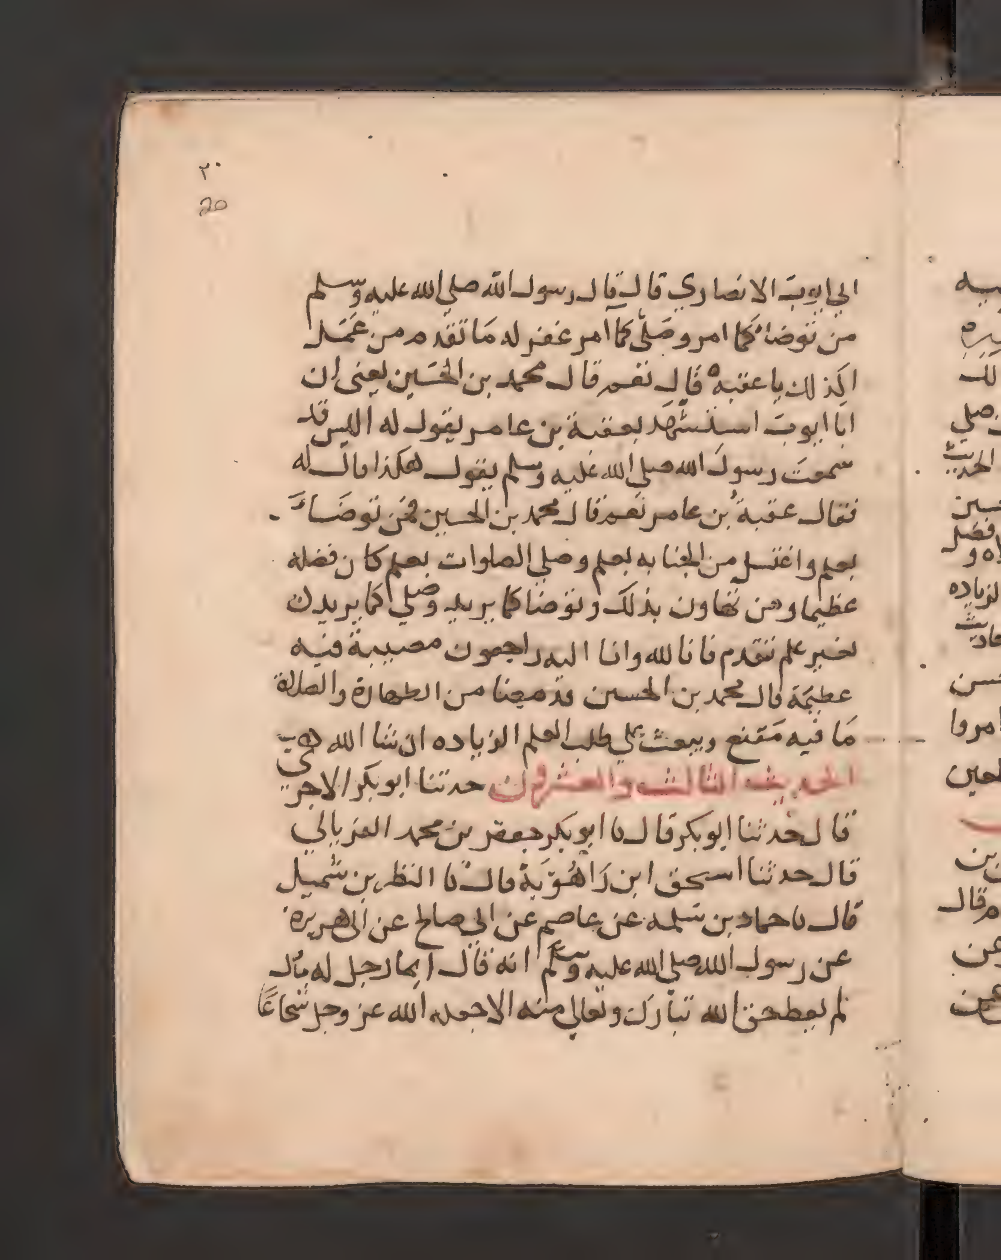 ٢٠
20
ابي ايوب الانصاري قال قال رسول الله صلي الله عليه وسلم
من توضا كما امر وصلي كما امر غفر له ما تقدم من عمل
اكذلك يا عقبة قال نعم قال محمد بن الحسين يعني ان
ابا ايوب استشهد بعقبة بن عامر يقول له اليس قد
سمعت رسول الله صلي الله عليه وسلم يقول هكذا قال له
فقال عقبة بن عامر نعم قال محمد بن الحسين فمن توضاء
بعلم واغتسل من الجنابه بعلم وصلي الصلوات بعلم كان فضله
عظيما ومن تهاون بذلك وتوضا كما يريد وصلي كما يريد
لغير علم تقدم فانا لله وانا اليه راجعون مصيبة فيه
عظيمة قال محمد بن الحسين من الطهارة والصلاة
ما فيه مقنع ويبعث علي طلب العلم الزياده ان شا الله
الحديث الثالث والعشرون حدثنا ابو بكر الاجري
قال حدثنا ابو بكر قال نا ابو بكر جعفر بن محمد الفريابي
قال حدثنا اسحق ابن راهوية قال نا النظر بن شميل
قال نا حماد بن سلمه عن عاصم عن ابي صالح عن ابي هريرة
عن رسول الله صلي الله عليه وسلم انه قال ايما رجل له مال
لم يعط حق الله تبارك وتعالي منه الا جعله الله عز وجل شجاعا